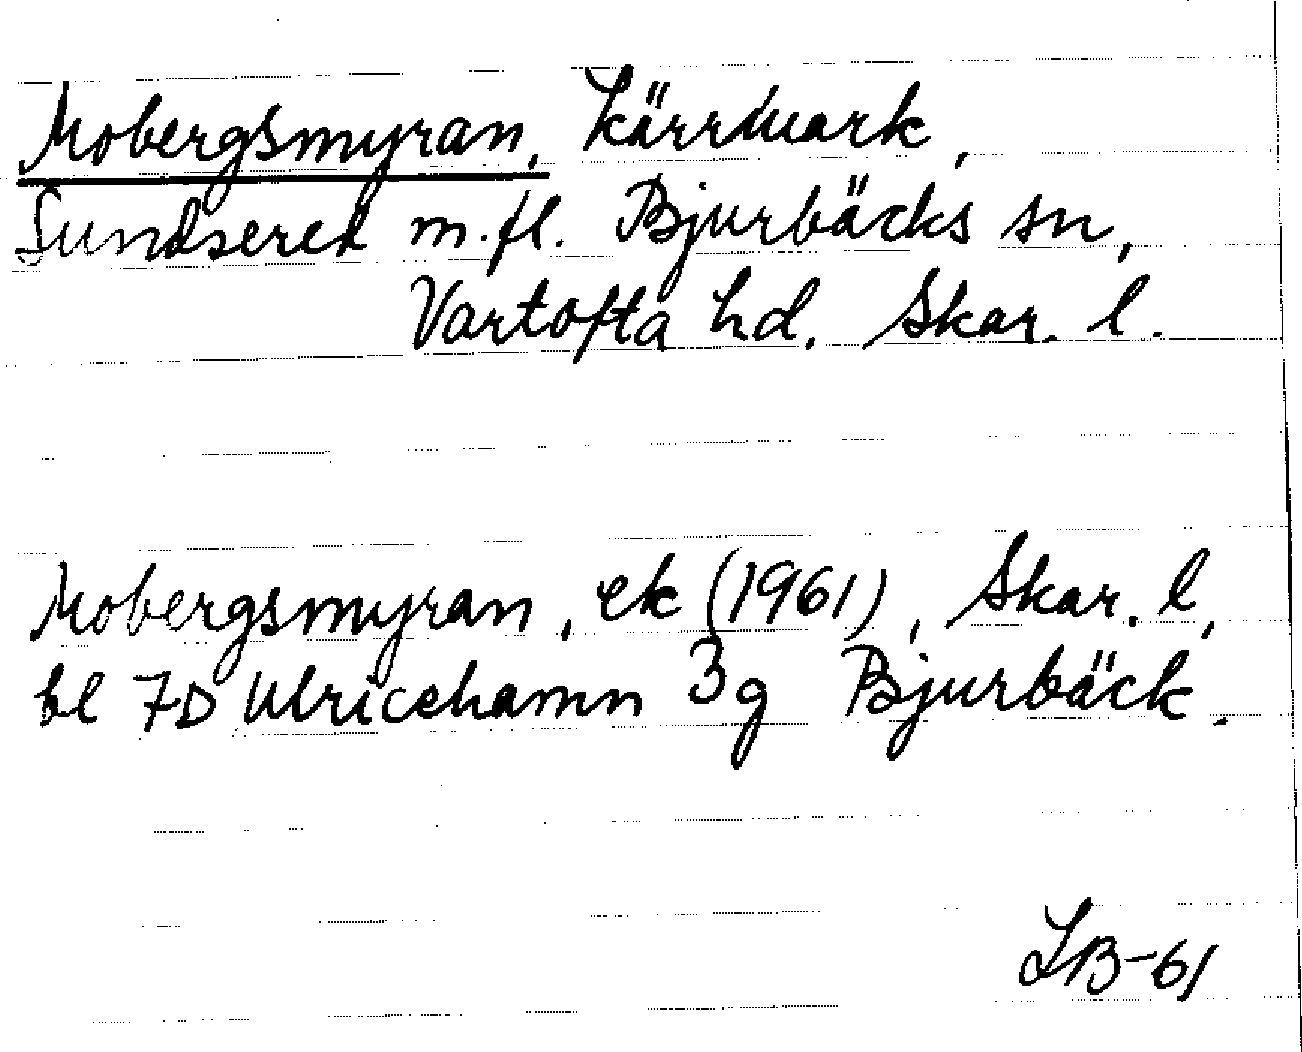 Mobergsmyran, kärrmark,
Sundsered m.fl. Bjurbäcks sn,
Vartofta hd. Skar. l.
Mobergsmyran, ek (1961), Skar. l,
bl 7D Ulricehamn 3g Bjurbäck.
LB-61